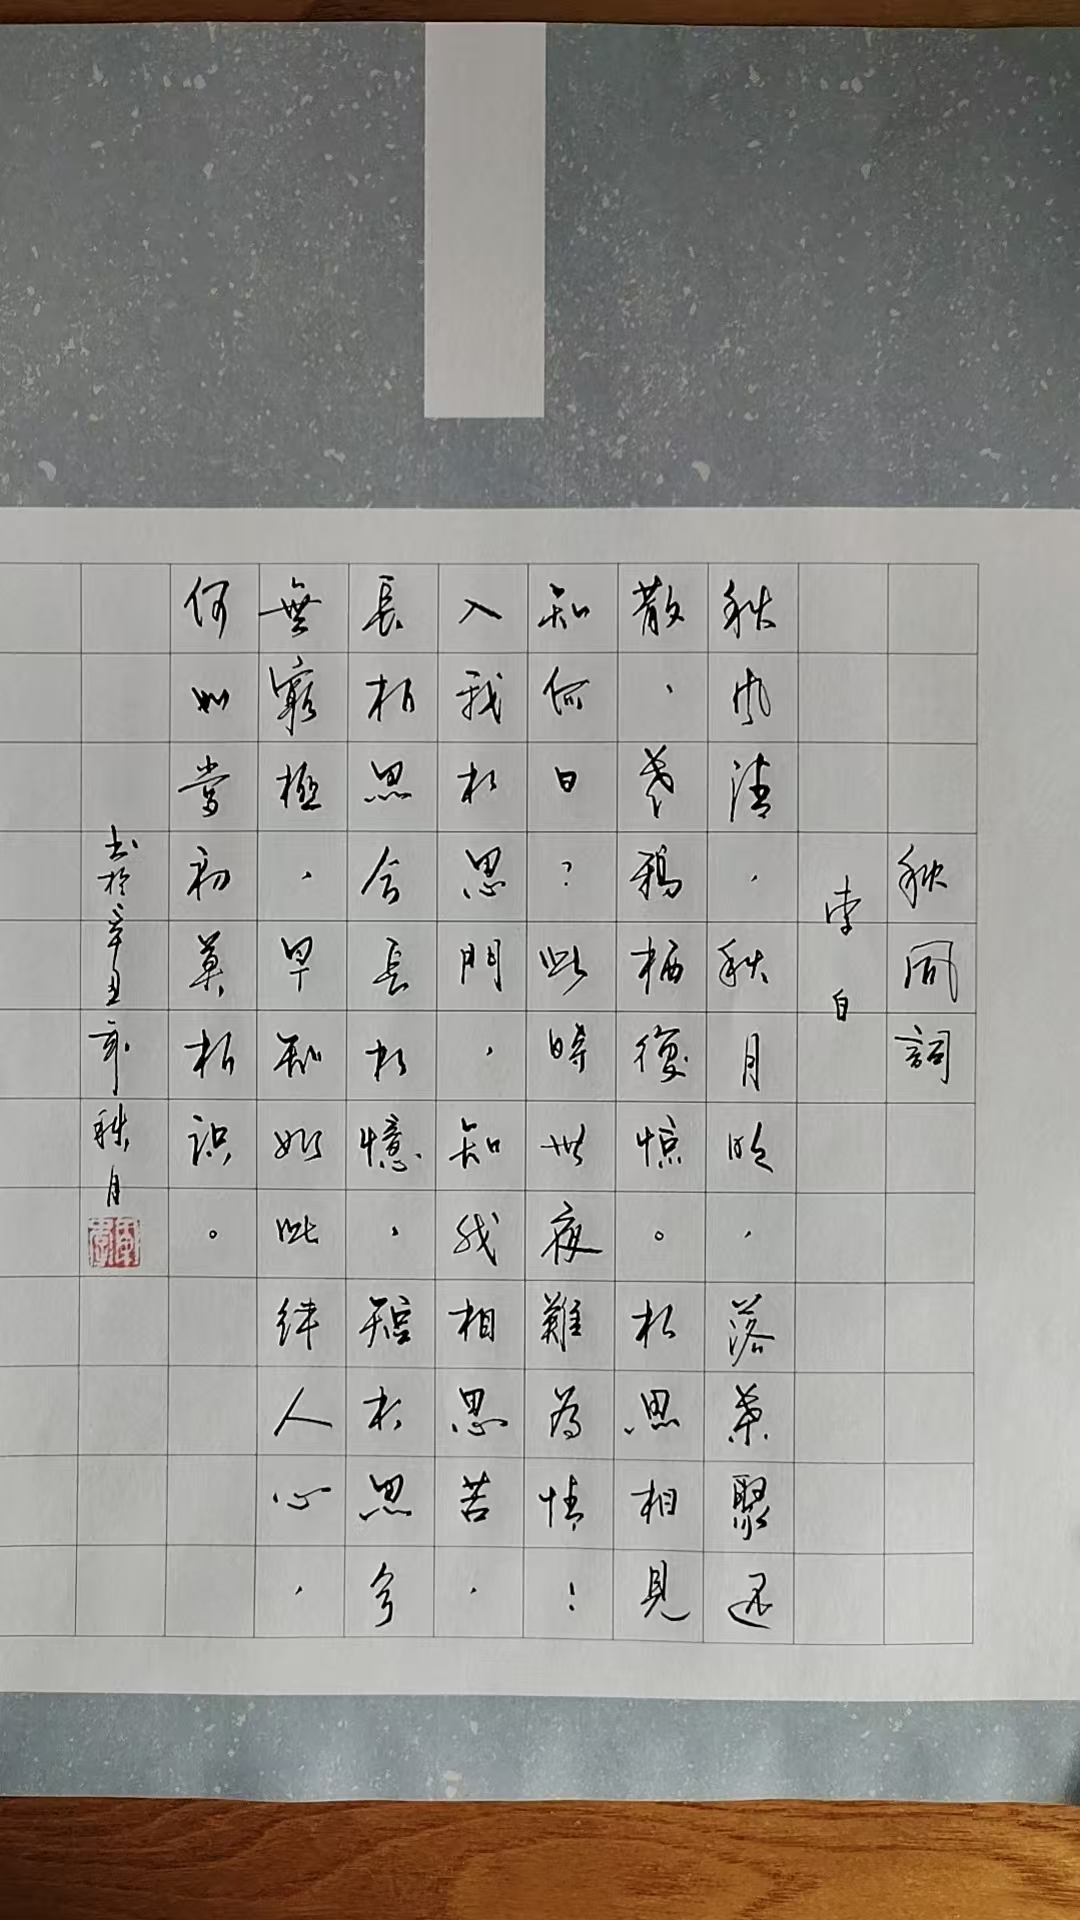 秋風詞
李白
秋风清，秋月明，落葉聚还
散，寒鸦栖復惊。相思相見
知何日？此時此夜難為情！
入我相思門，知我相思苦，
長相思兮長相憶，短相思兮
無窮極，早知如此绊人心，
何如當初莫相识。
书於辛丑年秋月